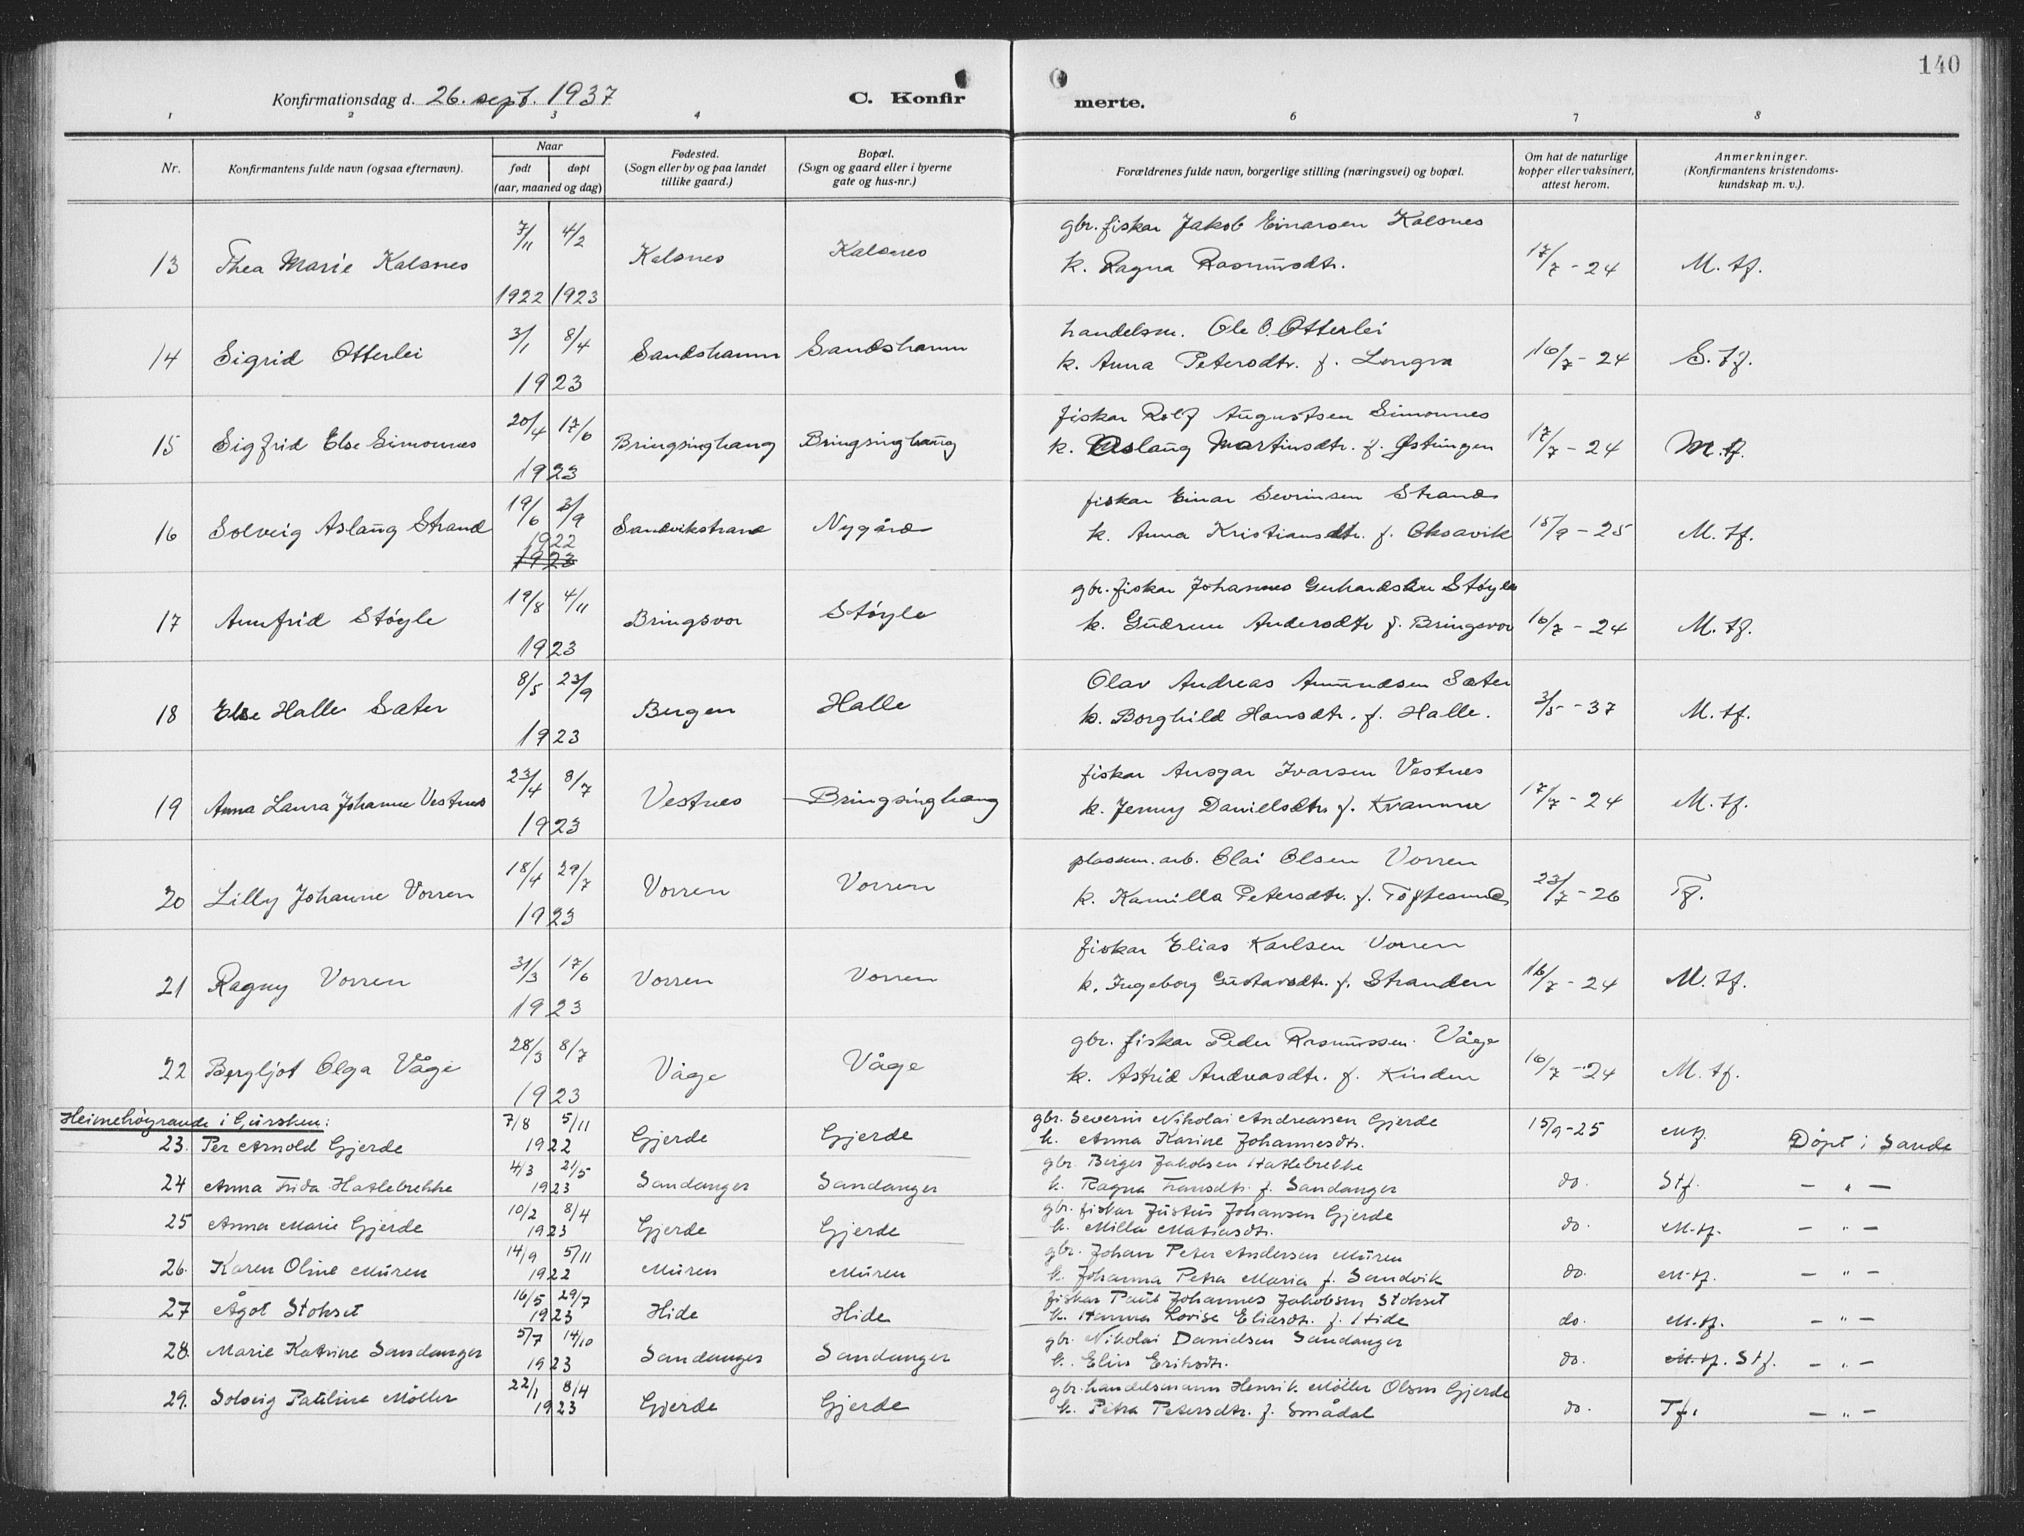 140
Konfirmationsdag d. 26. sept. 1937 C. Konfir merte.
1 2 3 4 6 7 8
Nr. Konfirmantens fulde navn (ogsaa efternavn). Naar født døpt (aar, maaned og dag) Fødested. (Sogn eller by og paa landet tillike gaard.) Bopæl. (Sogn og gaard eller i byerne gate og hus-nr.) Forældrenes fulde navn, borgerlige stilling (næringsvei) og bopæl. Om hat de naturlige kopper eller vaksinert, attest herom. Anmerkninger. (Konfirmantens kristendoms-kundskap m. v.).
7/11 4/2 gbr. fiskar Jakob Einarsen Kalsnes
13 Thea Marie Kalsnes Kalsnes Kalsnes k. Ragna Rasmusdtr. 17/7 - 24 M. tf.
1922 1923
3/1 8/4 handelsm. Ole O. Otterlei
14 Sigrid Otterlei Sandshamn Sandshamn k. Anna Petersdtr. f. Longva 16/7 - 24 S. tf.
1923
20/4 17/6 fiskar Rolf Augustsen Simonnes
15 Sigfrid Else Simonnes Bringsinghaug Bringsinghaug k. Aslaug Martinsdtr. f. Østringen 17/7 - 24 M. tf.
1923
19/6 3/9 fiskar Einar Sevrinsen Strand
16 Solveig Aslaug Strand Sandvikstrand Nygård k. Anna Kristiansdtr. f. Oksavik 15/9 - 25 M. tf.
1922
1923
19/8 4/11 gbr. fiskar Johannes Gerhardsen Støyle
17 Annfrid Støyle Bringsvor Støyle k. Gudrun Andersdtr f. Bringsvor 16/7 - 24 M. tf.
1923
8/5 23/9 Olav Andreas Amundsen Sæter
18 Else Halle Sæter Bergen Halle k. Borghild Hansdtr. f. Halle. 3/5 - 37 M. tf.
1923
23/4 8/7 fiskar Ansgar Ivarsen Vestnes
19 Anna Laura Johanne Vestnes Vestnes Bringsinghaug k. Jenny Danielsdtr f. Kvamme 17/7 - 24 M. tf.
1923
18/4 29/7 plassm. arb. Olai Olsen Vorren
20 Lilly Johanne Vorren Vorren Vorren k. Kamilla Petersdtr. f. Toftesund 23/7 - 26 Tf.
1923
31/3 17/6 fiskar Elias Karlsen Vorren
21 Ragny Vorren Vorren Vorren k. Ingeborg Gustavsdtr. f. Stranden 16/7 - 24 M. tf.
1923
28/3 8/7 gbr. fiskar Peder Rasmussen Våge
22 Bergljot Olga Våge Våge Våge k. Astrid Andreasdtr. f. Kinden 16/7 - 24 M. tf.
1923
Heimehøyrande i Gursken: 7/8 5/11 gbr. Severin Nikolai Andreassen Gjerde
23. Per Arnold Gjerde 1922 Gjerde Gjerde k. Anna Karine Johannesdtr. 15/9-25 Mtf. Døpt i Sande
4/3 21/5 gbr. Birger Jakobsen Hatlebrekke
24 Anna Frida Hatlebrekke 1923 Sandanger Sandanger k. Ragna Fransdtr. f. Sandanger do. Stf. — " —
10/2 8/4 gbr. fiskar Justus Johansen Gjerde
25 Anna Marie Gjerde 1923 Gjerde Gjerde k. Milla Matiasdtr. do. M.tf. — " —
14/9 5/11 gbr. Johan Peter Andersen Muren
26. Karen Oline Muren 1922 Muren Muren k. Johanna Petra Maria f. Sandvik do. M.tf. — " —
16/5 29/7 fiskar Paul Johannes Jakobsen Stokset
27 Ågot Stokset 1923 Hide Hide k. Hanna Lovise Eliasdtr. f. Hide do. M.tf. — " —
5/7 14/10 gbr. Nikolai Danielsen Sandanger
28. Marie Katrine Sandanger 1923 Sandanger Sandanger k. Elin Eriksdtr. do. M.tf. Stf. — " —
22/1 8/4 gbr. handelsmann Henrik Møller Olsen Gjerde
29. Solveig Pauline Møller 1923 Gjerde Gjerde k. Petra Petersdtr. f. Smådal do. Tf. — " —